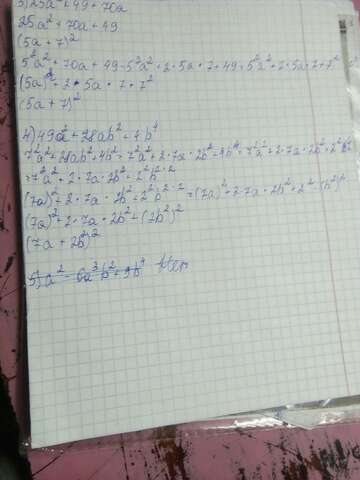 3) 25a² + 49 + 70a
25a² + 70a + 49
(5a + 7)²
5²a² + 70a + 49 = 5²a² + 2 · 5a · 7 + 49 = 5²a² + 2 · 5a · 7 + 7²
(5a)² + 2 · 5a · 7 + 7²
(5a + 7)²
4) 49a² + 28ab² + 4b⁴
7²a² + 28ab² + 4b⁴ = 7²a² + 2 · 7a · 2b² + 4b⁴ = 7²a² + 2 · 7a · 2b² + 2²
= 7²a² + 2 · 7a · 2b² + 2²b²·²
(7a)² + 2 · 7a · 2b² + 2²b²·² = (7a)² + 2 · 7a · 2b² + 2² · (b²)²
(7a)² + 2 · 7a · 2b² + (2b²)²
(7a + 2b²)²
5) a² - 6a³b² + 9b⁴ Нет